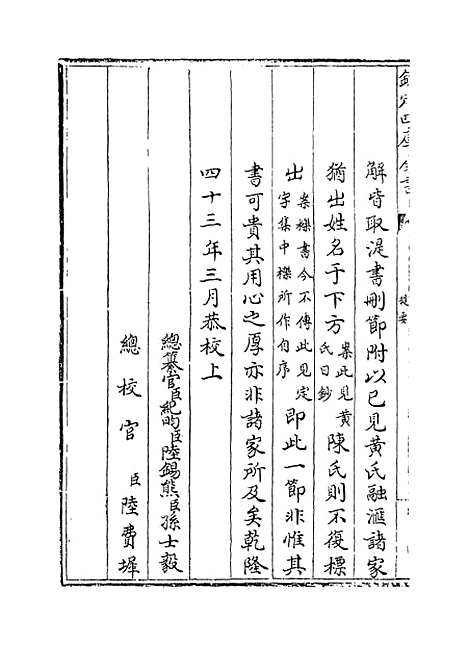 欽定四庫全書
提要
解皆取湜書刪節附以已見黃氏融滙諸家
猶出姓名于下方案此見黃氏日鈔陳氏則不復標
出案櫟書今不傳此見定宇集中櫟所作自序即此一節非惟其
書可貴其用心之厚亦非諸家所及矣乾隆
四十三年三月恭校上
總纂官臣紀昀臣陸錫熊臣孫士毅
總校官臣陸費墀